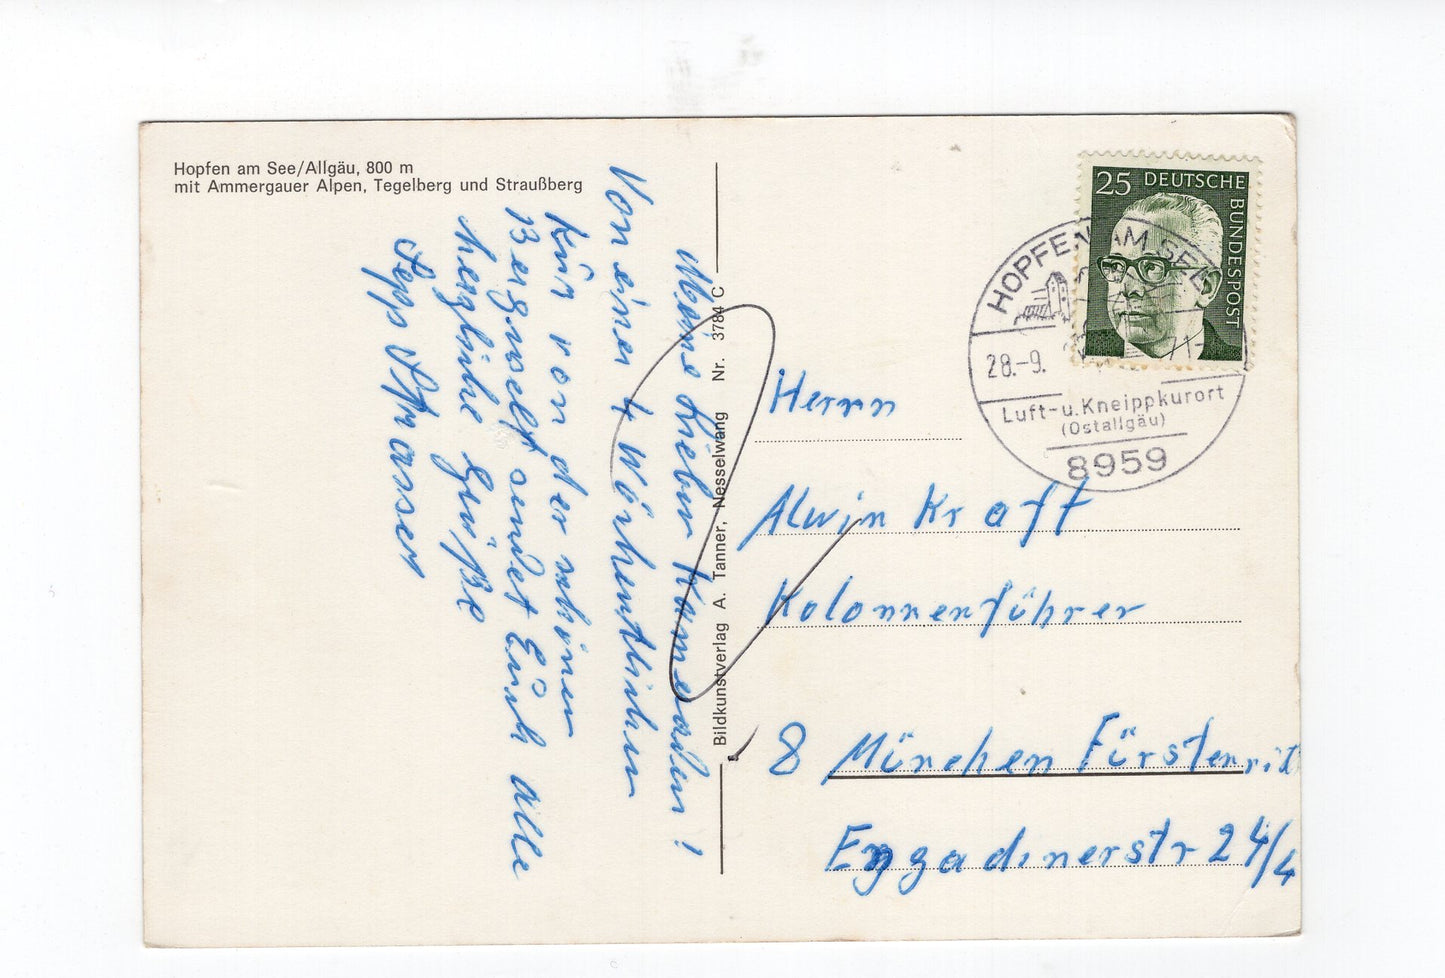 Hopfen am See/Allgäu, 800 m
mit Ammergauer Alpen, Tegelberg und Straußberg
Meine Lieben Kameraden!
Von einer 4 wöchentlichen
Kür von der schönen
Bergwelt sendet Euch alle
herzliche Grüße
Sepp Strasser
Bildkunstverlag A. Tanner, Nesselwang Nr. 3784 C
25 DEUTSCHE
BUNDESPOST
HOPFEN AM SEE
28.-9.
Luft-u. Kneippkurort
(Ostallgäu)
8959
Herrn
Alwin Kraft
Kolonnenführer
8 München Fürstenrid
Engadinerstr 24/4